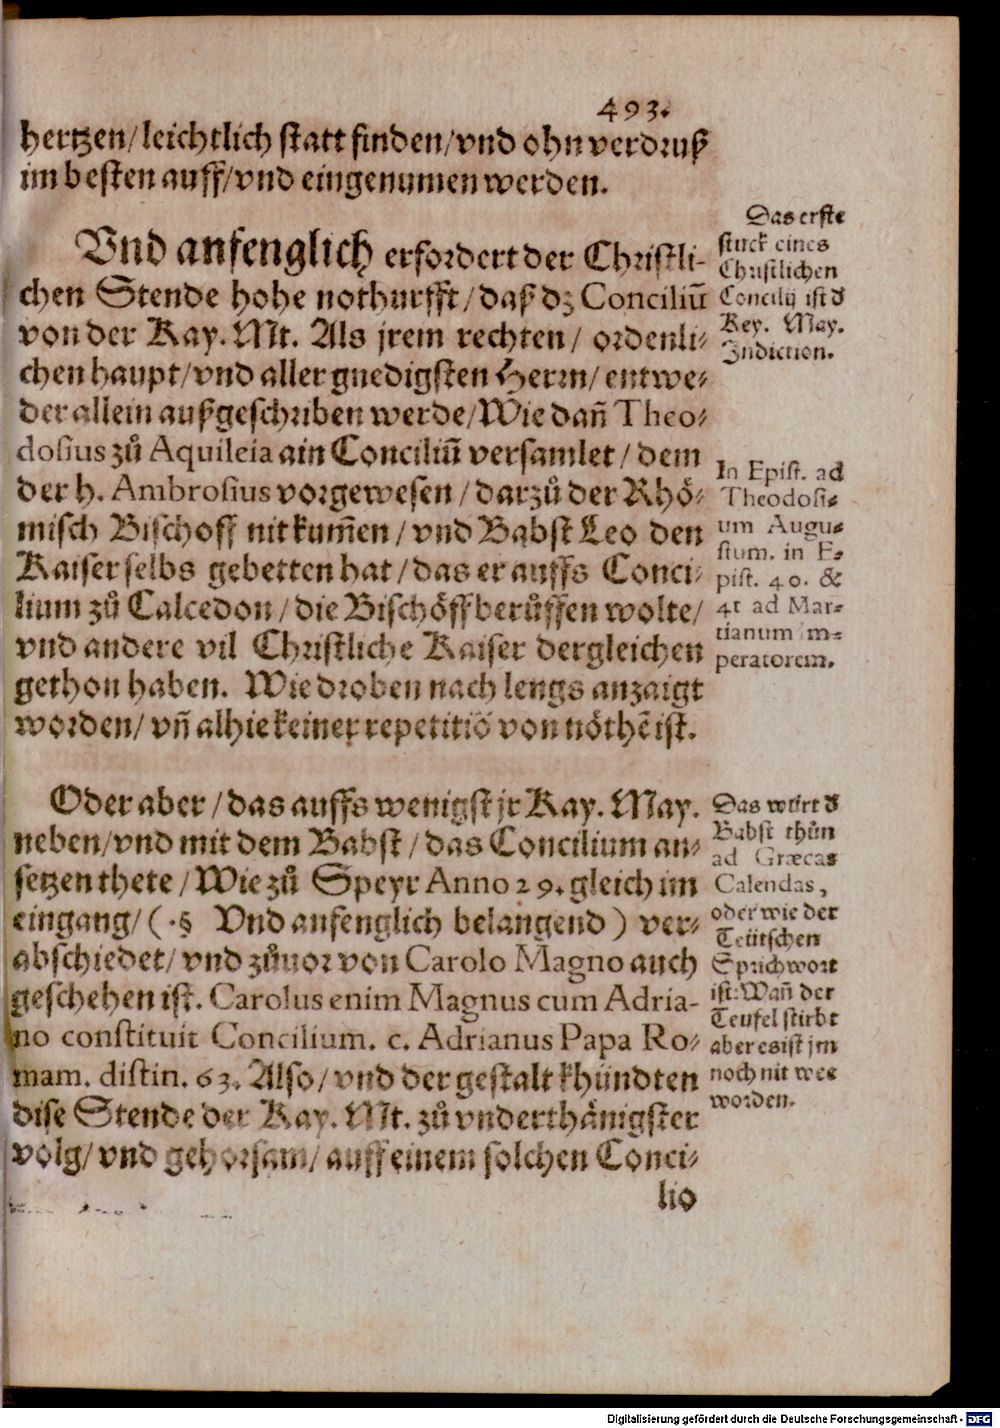 493.
hertzen/leichtlich statt finden/vnd ohn verdruß
im besten auff/vnd eingenumen werden.
Vnd anfenglich erfordert der Christli-
chen Stende hohe nothurfft/daß dz Conciliū
von der Kay. Mt. Als jrem rechten/ ordenli-
chen haupt/vnd aller gnedigsten Herrn/entwe-
der allein außgeschriben werde/Wie dañ Theo-
dosius zů Aquileia ain Conciliū versamlet/dem
der h. Ambrosius vorgewesen/darzů der Rhö-
misch Bischoff nit kum̃en/vnd Babst Leo den
Kaiser selbs gebetten hat/das er auffs Conci-
lium zů Calcedon/die Bischöff berůffen wolte/
vnd andere vil Christliche Kaiser dergleichen
gethon haben. Wie droben nach lengs anzaigt
worden/ vñ alhie keiner repetitiō von nöthē ist.
Oder aber/das auffs wenigst jr Kay. May.
neben/vnd mit dem Babst/das Concilium an-
setzen thete/Wie zů Speyr Anno 29. gleich im
eingang/(.§ Vnd anfenglich belangend) ver-
abschiedet/vnd zůuor von Carolo Magno auch
geschehen ist. Carolus enim Magnus cum Adria-
no constituit Concilium. c. Adrianus Papa Ro-
mam. distin. 63. Also/vnd der gestalt khündten
dise Stende der Kay. Mt. zů vnderthänigster
volg/vnd gehorsam/auff einem solchen Conci-
lio
Das erste
stuck eines
Christlichen
Concilij ist d
Key. May.
Indiction.
In Epist. ad
Theodosi-
um Augu-
stum. in E-
pist. 40. &
41 ad Mar-
tianum im-
peratorem.
Das würt d
Babst thůn
ad Græcas
Calendas,
oder wie der
Teütschen
Sprichwort
ist: Wañ der
Teufel stirbt
aber es ist jm
noch nit wee
worden.
Digitalisierung gefördert durch die Deutsche Forschungsgemeinschaft - DFG